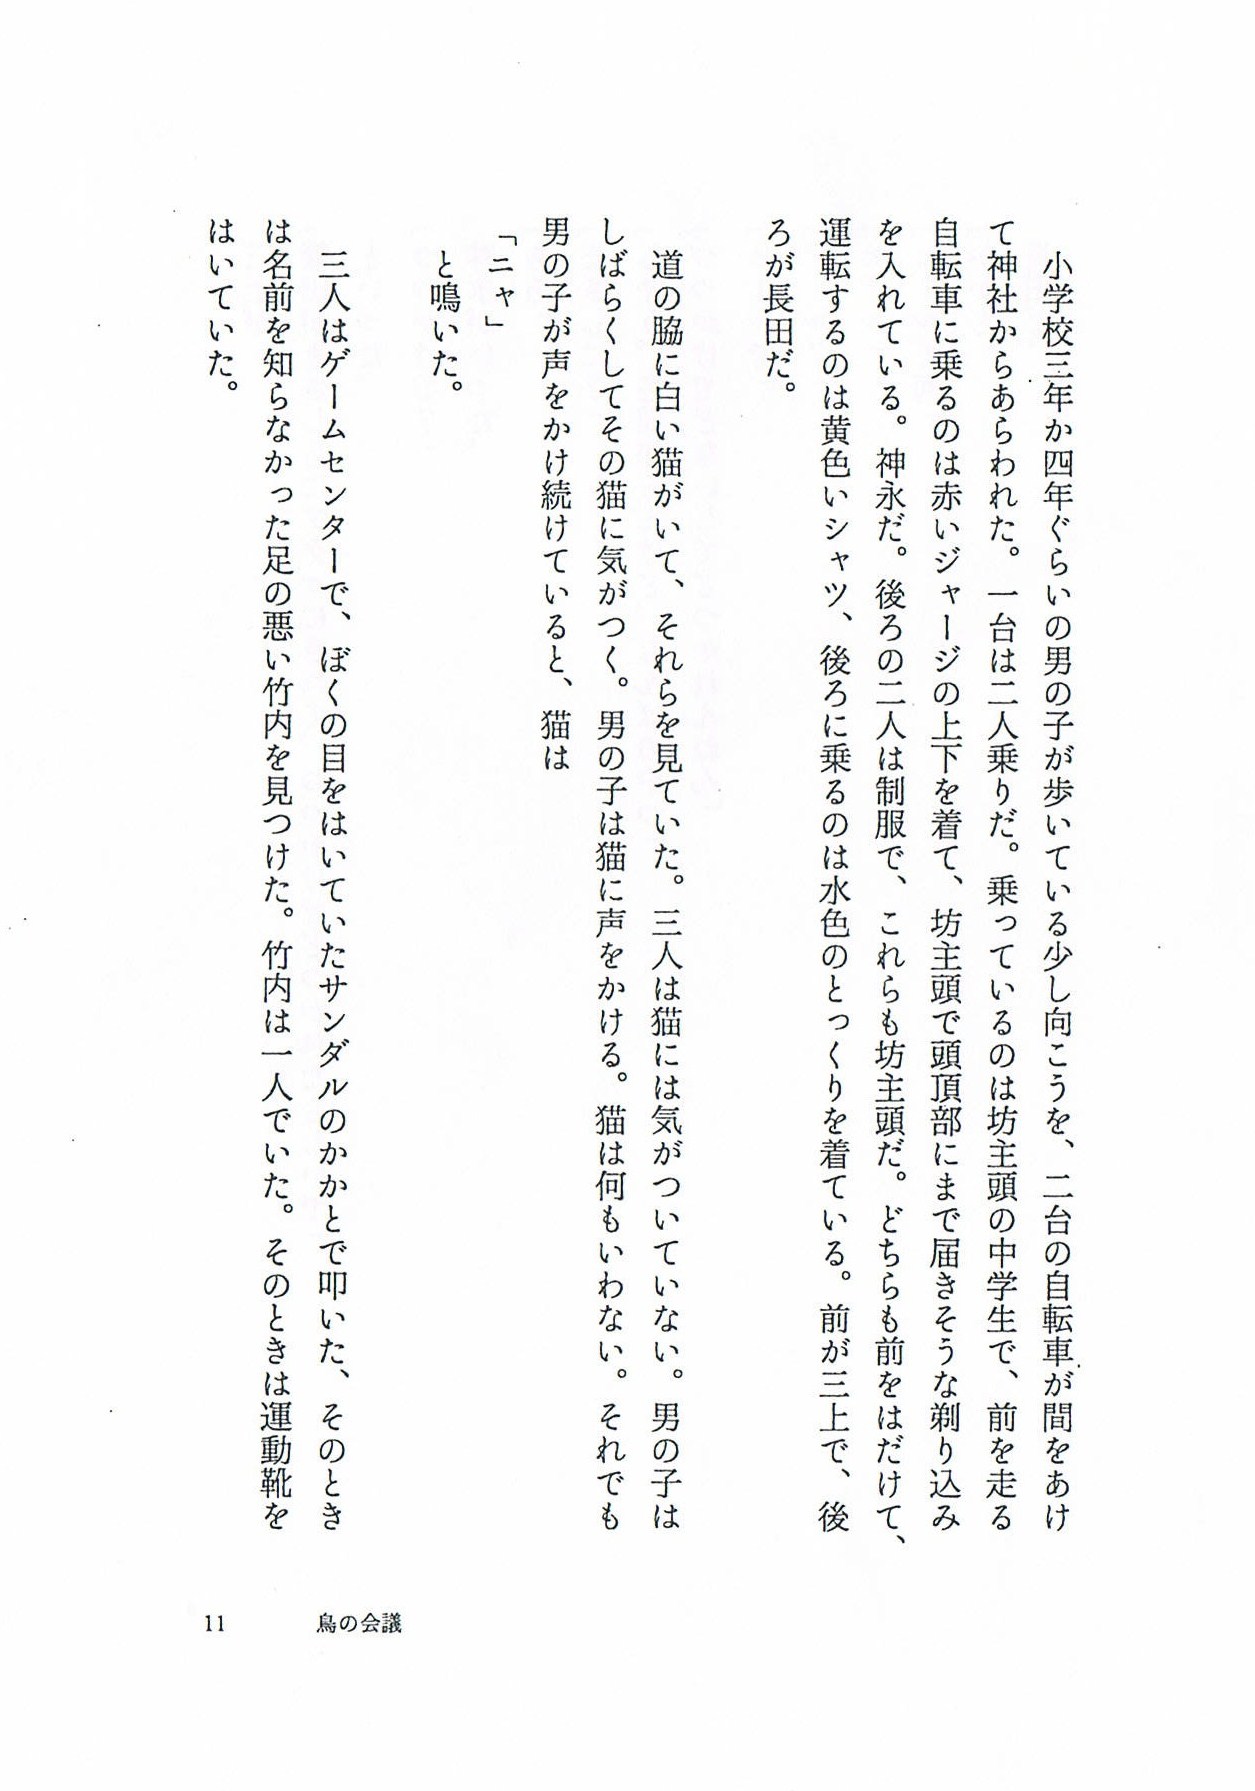 小学校三年か四年ぐらいの男の子が歩いている少し向こうを、二台の自転車が間をあけ
て神社からあらわれた。一台は二人乗りだ。乗っているのは坊主頭の中学生で、前を走る
自転車に乗るのは赤いジャージの上下を着て、坊主頭で頭頂部にまで届きそうな剃り込み
を入れている。神永だ。後ろの二人は制服で、これらも坊主頭だ。どちらも前をはだけて、
運転するのは黄色いシャツ、後ろに乗るのは水色のとっくりを着ている。前が三上で、後
ろが長田だ。
道の脇に白い猫がいて、それらを見ていた。三人は猫には気がついていない。男の子は
しばらくしてその猫に気がつく。男の子は猫に声をかける。猫は何もいわない。それでも
男の子が声をかけ続けていると、猫は
「ニャ」
と鳴いた。
三人はゲームセンターで、ぼくの目をはいていたサンダルのかかとで叩いた、そのとき
は名前を知らなかった足の悪い竹内を見つけた。竹内は一人でいた。そのときは運動靴を
はいていた。
11 鳥の会議